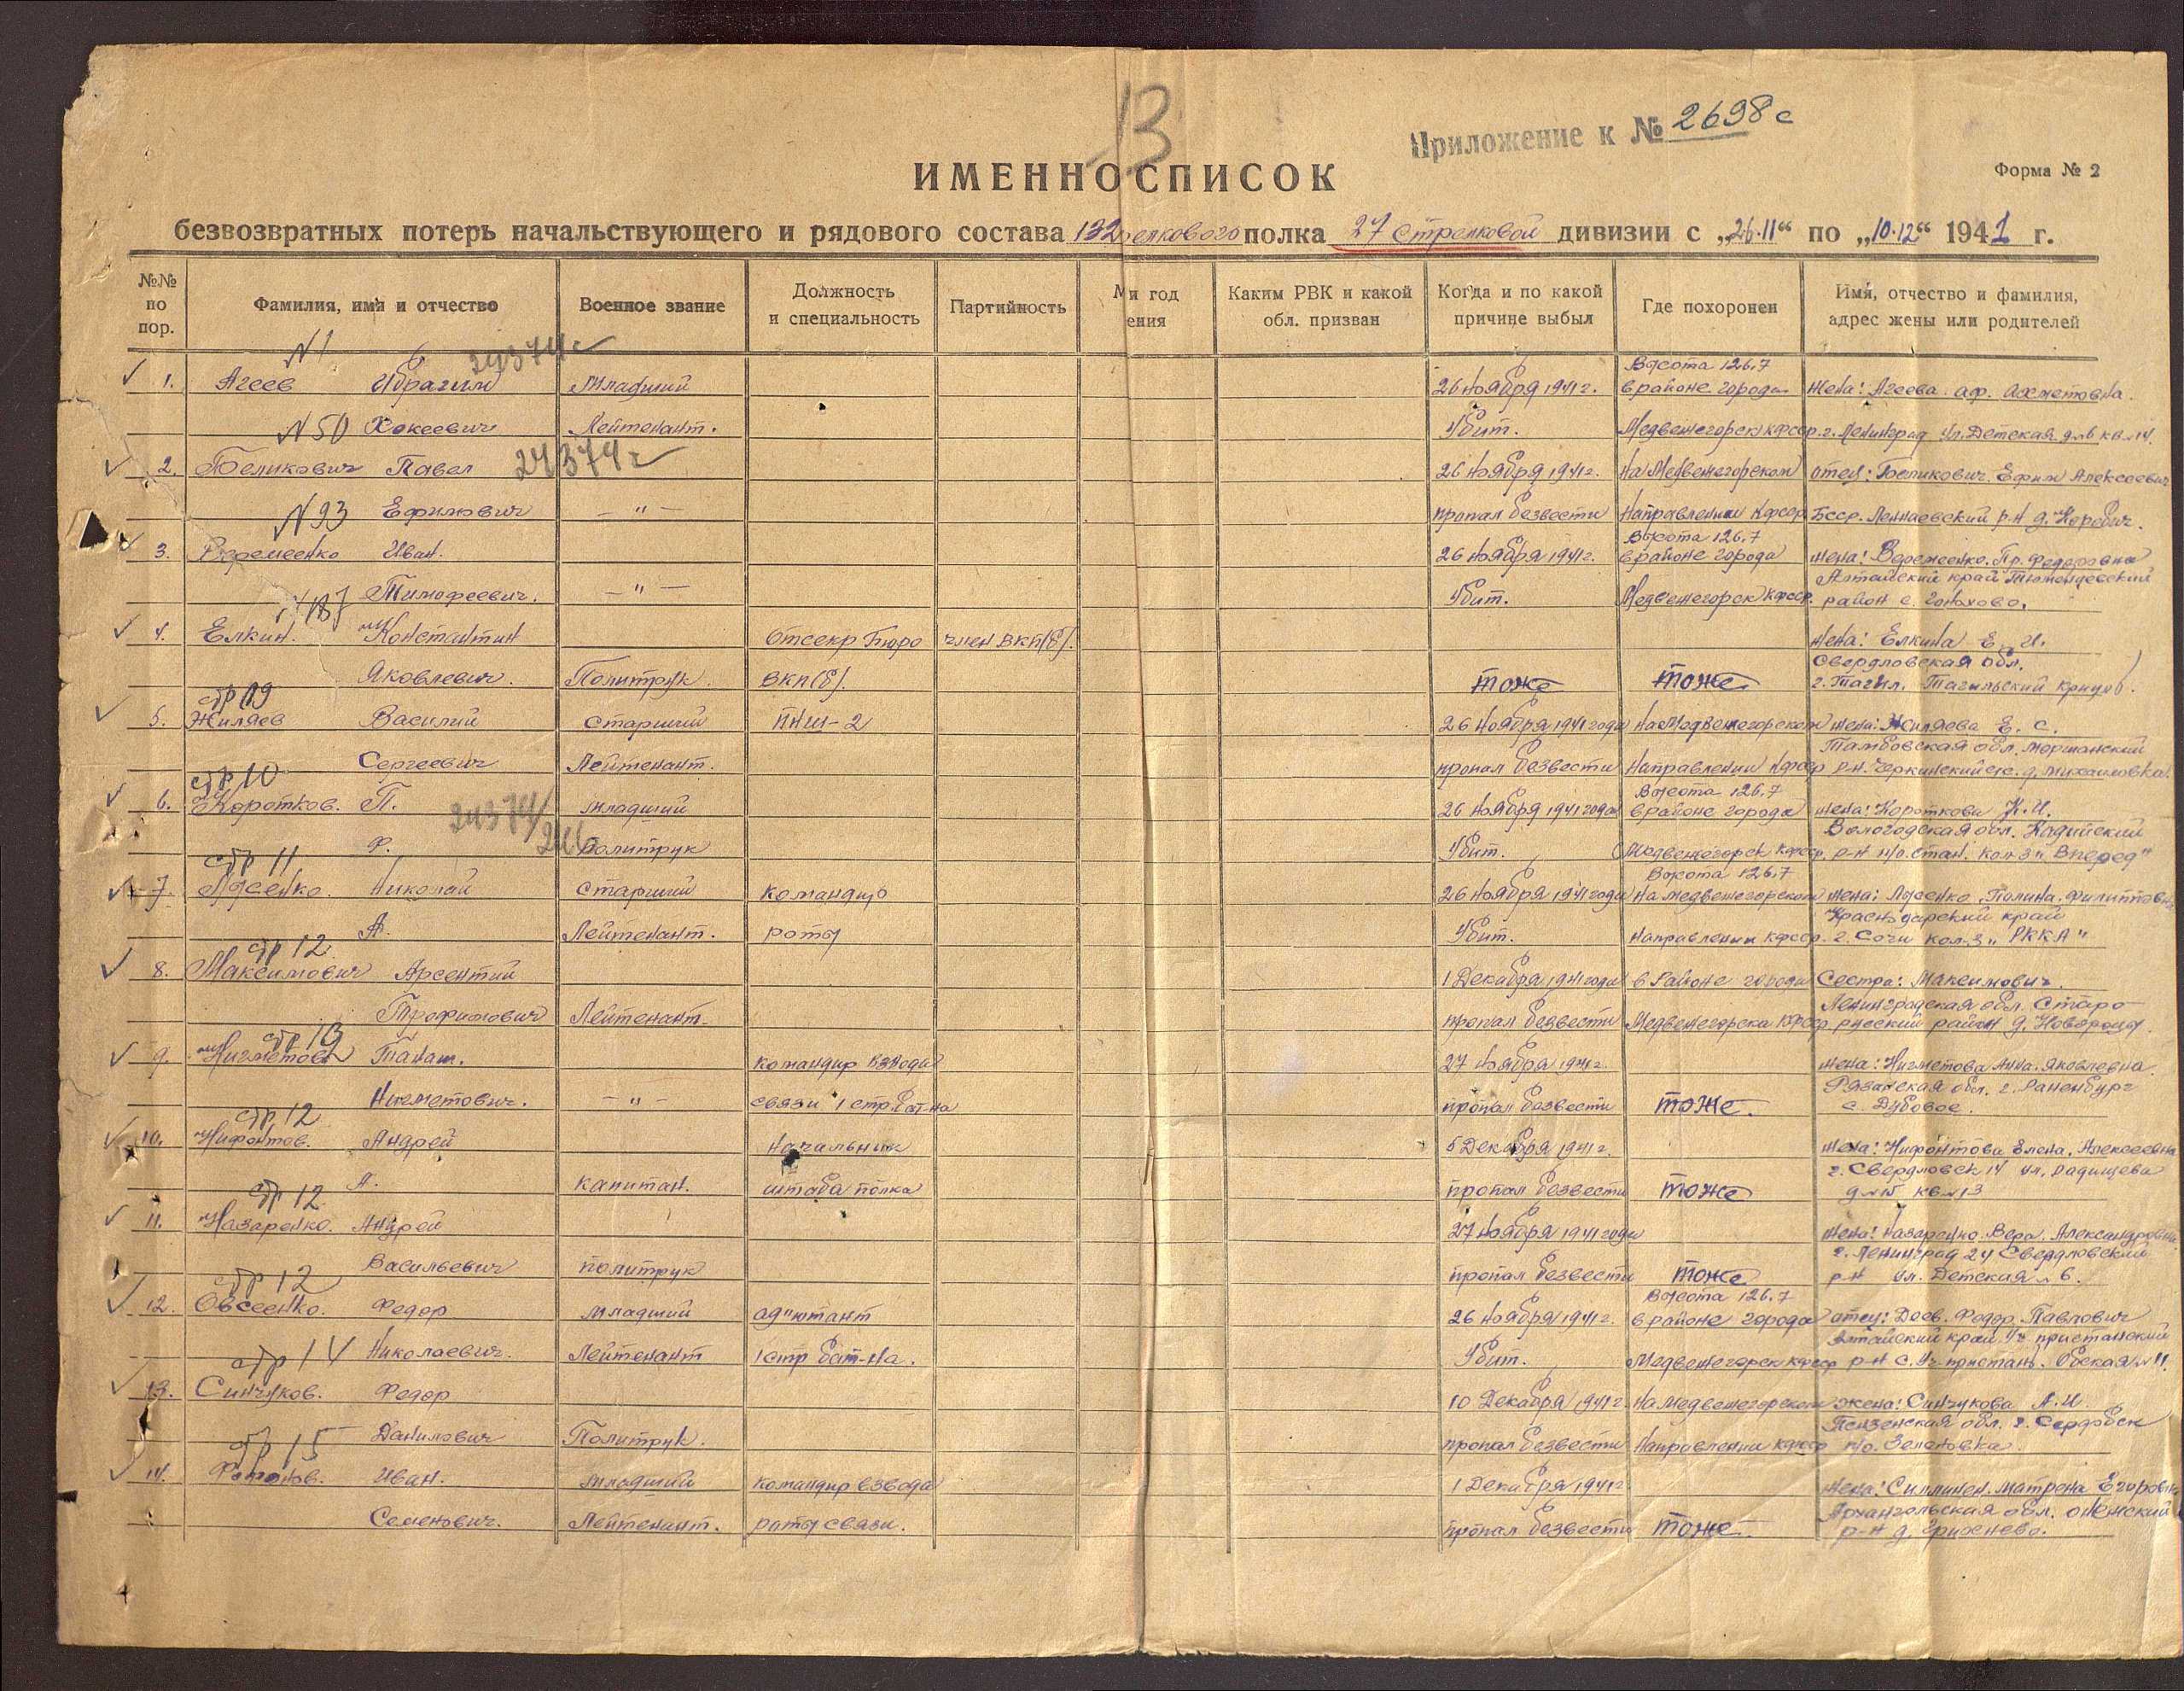 13
Приложение к № 2698с
ИМЕННОСПИСОК
Форма № 2
безвозвратных потерь начальствующего и рядового состава 132 елкового полка 27 Стрелковой дивизии с „26.11“ по „10.12“ 1941 г.
№№ по пор.
Фамилия, имя и отчество
Военное звание
Должность и специальность
Партийность
М и год ения
Каким РВК и какой обл. призван
Когда и по какой причине выбыл
Где похоронен
Имя, отчество и фамилия, адрес жены или родителей
N1 24374с
Высота 126,7
1. Агеев Ибрагим Младший 26 ноября 1941 г. в районе города жена: Агеева аф. Ахметовна.
N50 Хокеевич Лейтенант. Убит. Медвежегорск кфсср. г. Ленинград ул. Детская д№6 кв№14.
2. Беликович Павел 24374с 26 ноября 1941г. на Медвежегорском отец: Беликович Ефим Алексеевич
N93 Ефимович —"— пропал безвести направлении кфсср Бсср. р-н д.
Высота 126,7
3. Веремеенко Иван. 26 ноября 1941г. в районе города жена: Веремеенко Пр. Федоровна
Алтайский край
Тимофеевич. —"— Убит. Медвежегорск кфсср. район с.
N187
4. Елкин. Константин Отсекр Бюро член ВКП(б). жена: Елкина Е. И.
Свердловская обл.
Яковлевич. Политрук. ВКП(б). тоже тоже г. Тагил. Тагильский
стр 09
5. Жиляев Василий Старший ПНШ-2 26 ноября 1941 года на Медвежегорском жена: Жиляева Е. С.
Тамбовская обл. Моршанский
Сергеевич Лейтенант. пропал безвести направлении кфсср р-н. д. Михайловка.
стр 10
Высота 126,7
6. Коротков. П. младший 26 ноября 1941 года в районе города жена: Короткова К. И.
24374/246
Вологодская обл.
Ф. политрук Убит. Медвежегорск кфсср. р-н п/о. стан. кол-з „Вперед"
стр 11
Высота 126,7
7. Лусенко. Николай Старший командир 26 ноября 1941 года на медвежегорском жена: Лусенко Полина. Филипповна
Краснодарский край
А. Лейтенант. роты Убит. направлении кфсср. г. Сочи кол-з „РККА"
стр 12
8. Максимович Арсентий 1 Декабря 1941 года в районе города Сестра: Максимович.
Ленинградская обл. Старо
Трофимович Лейтенант. пропал безвести Медвежегорска кфсср русский район д.
стр 13
9. Нигметов Танаш. командир взвода 27 ноября 1941г. жена: Нигметова Анна. Яковлевна
Рязанская обл. г. Раненбург
Нигметович. —"— связи 1 стр. бат-на пропал безвести тоже. с. Дубовое.
стр 12
10. Нифонтов. Андрей начальник 5 Декабря 1941г. жена: Нифонтова Елена. Алексеевна
г. Свердловск 14 ул. Радищева
А. капитан. штаба полка пропал безвести тоже д№15 кв№13
стр 12
11. Назаренко. Андрей 27 ноября 1941 года жена: Назаренко Вера. Александровна
г. Ленинград 24 Свердловский
Васильевич политрук пропал безвести тоже р-н ул. Детская №6.
стр 12
Высота 126.7
12. Овсеенко. Федор младший ад"ютант 26 ноября 1941г. в районе города отец: Федор Павлович
Алтайский край. Уч пристанский
Николаевич. Лейтенант 1 стр бат-на. Убит. Медвежегорск кфсср р-н с. Уч. пристань. Обская №11.
стр 14
13. Синчуков. Федор 10 Декабря 1941г. на Медвежегорском жена: Синчукова А. И.
Пензенская обл. г. Сердобск
Данилович Политрук. пропал безвести направлении кфсср п/о. Зеленовка.
стр 15
14. Иван. младший командир взвода 1 Декабря 1941г. жена: Матрена Егоровна
Архангельская обл. онежский
Семенович. Лейтенант. роты связи. пропал безвести тоже. р-н д.